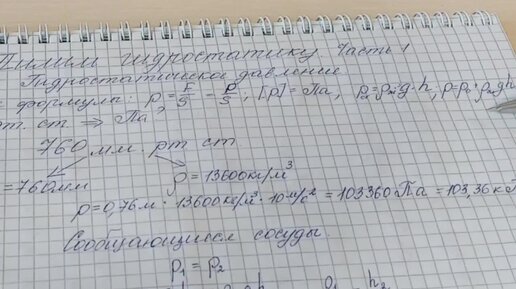 Пилим гидростатику Часть 1
Гидростатическое давление
формулы: p = F/S = P/S; [p] = Па, pж = ρж g·h, p = p₀ + ρж g h
рт. ст. ⇒ Па
760 мм. рт ст.
= 760 мм ρ = 13600 кг/м³
p = 0,76 м · 13600 кг/м³ · 10 м/с² = 103360 Па = 103,36 к
Сообщающиеся сосуды
p₁ = p₂